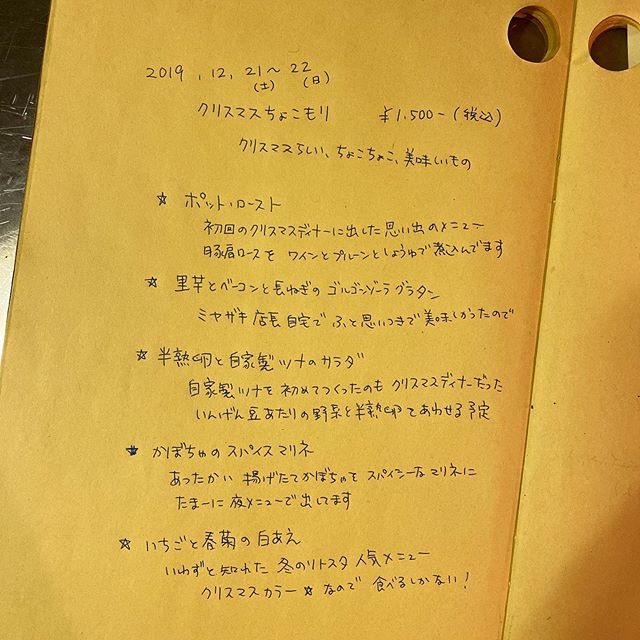 2019 . 12. 21〜22
(土) (日)
クリスマスちょこもり ¥1.500-(税込)
クリスマスらしい、ちょこちょこ、美味いもの
☆ ポット・ロースト
初回のクリスマスディナーに出した思い出のメニュー
豚肩ロースを ワインとプルーンとしょうゆで煮込んでます
☆ 里芋とベーコンと長ねぎの ゴルゴンゾーラグラタン
ミヤザキ店長自宅で ふと思いつきで美味しかったので
☆ 半熟卵と自家製ツナのサラダ
自家製ツナを初めてつくったのもクリスマスディナーだった
いんげん豆あたりの野菜と半熟卵であわせる予定
★ かぼちゃのスパイスマリネ
あったかい 揚げたてかぼちゃを スパイシーなマリネに
たまーに夜メニューで出してます
☆ いちごと春菊の白あえ
いわずと知れた 冬のリトスタ人気メニュー
クリスマスカラー★なので 食べるしかない!